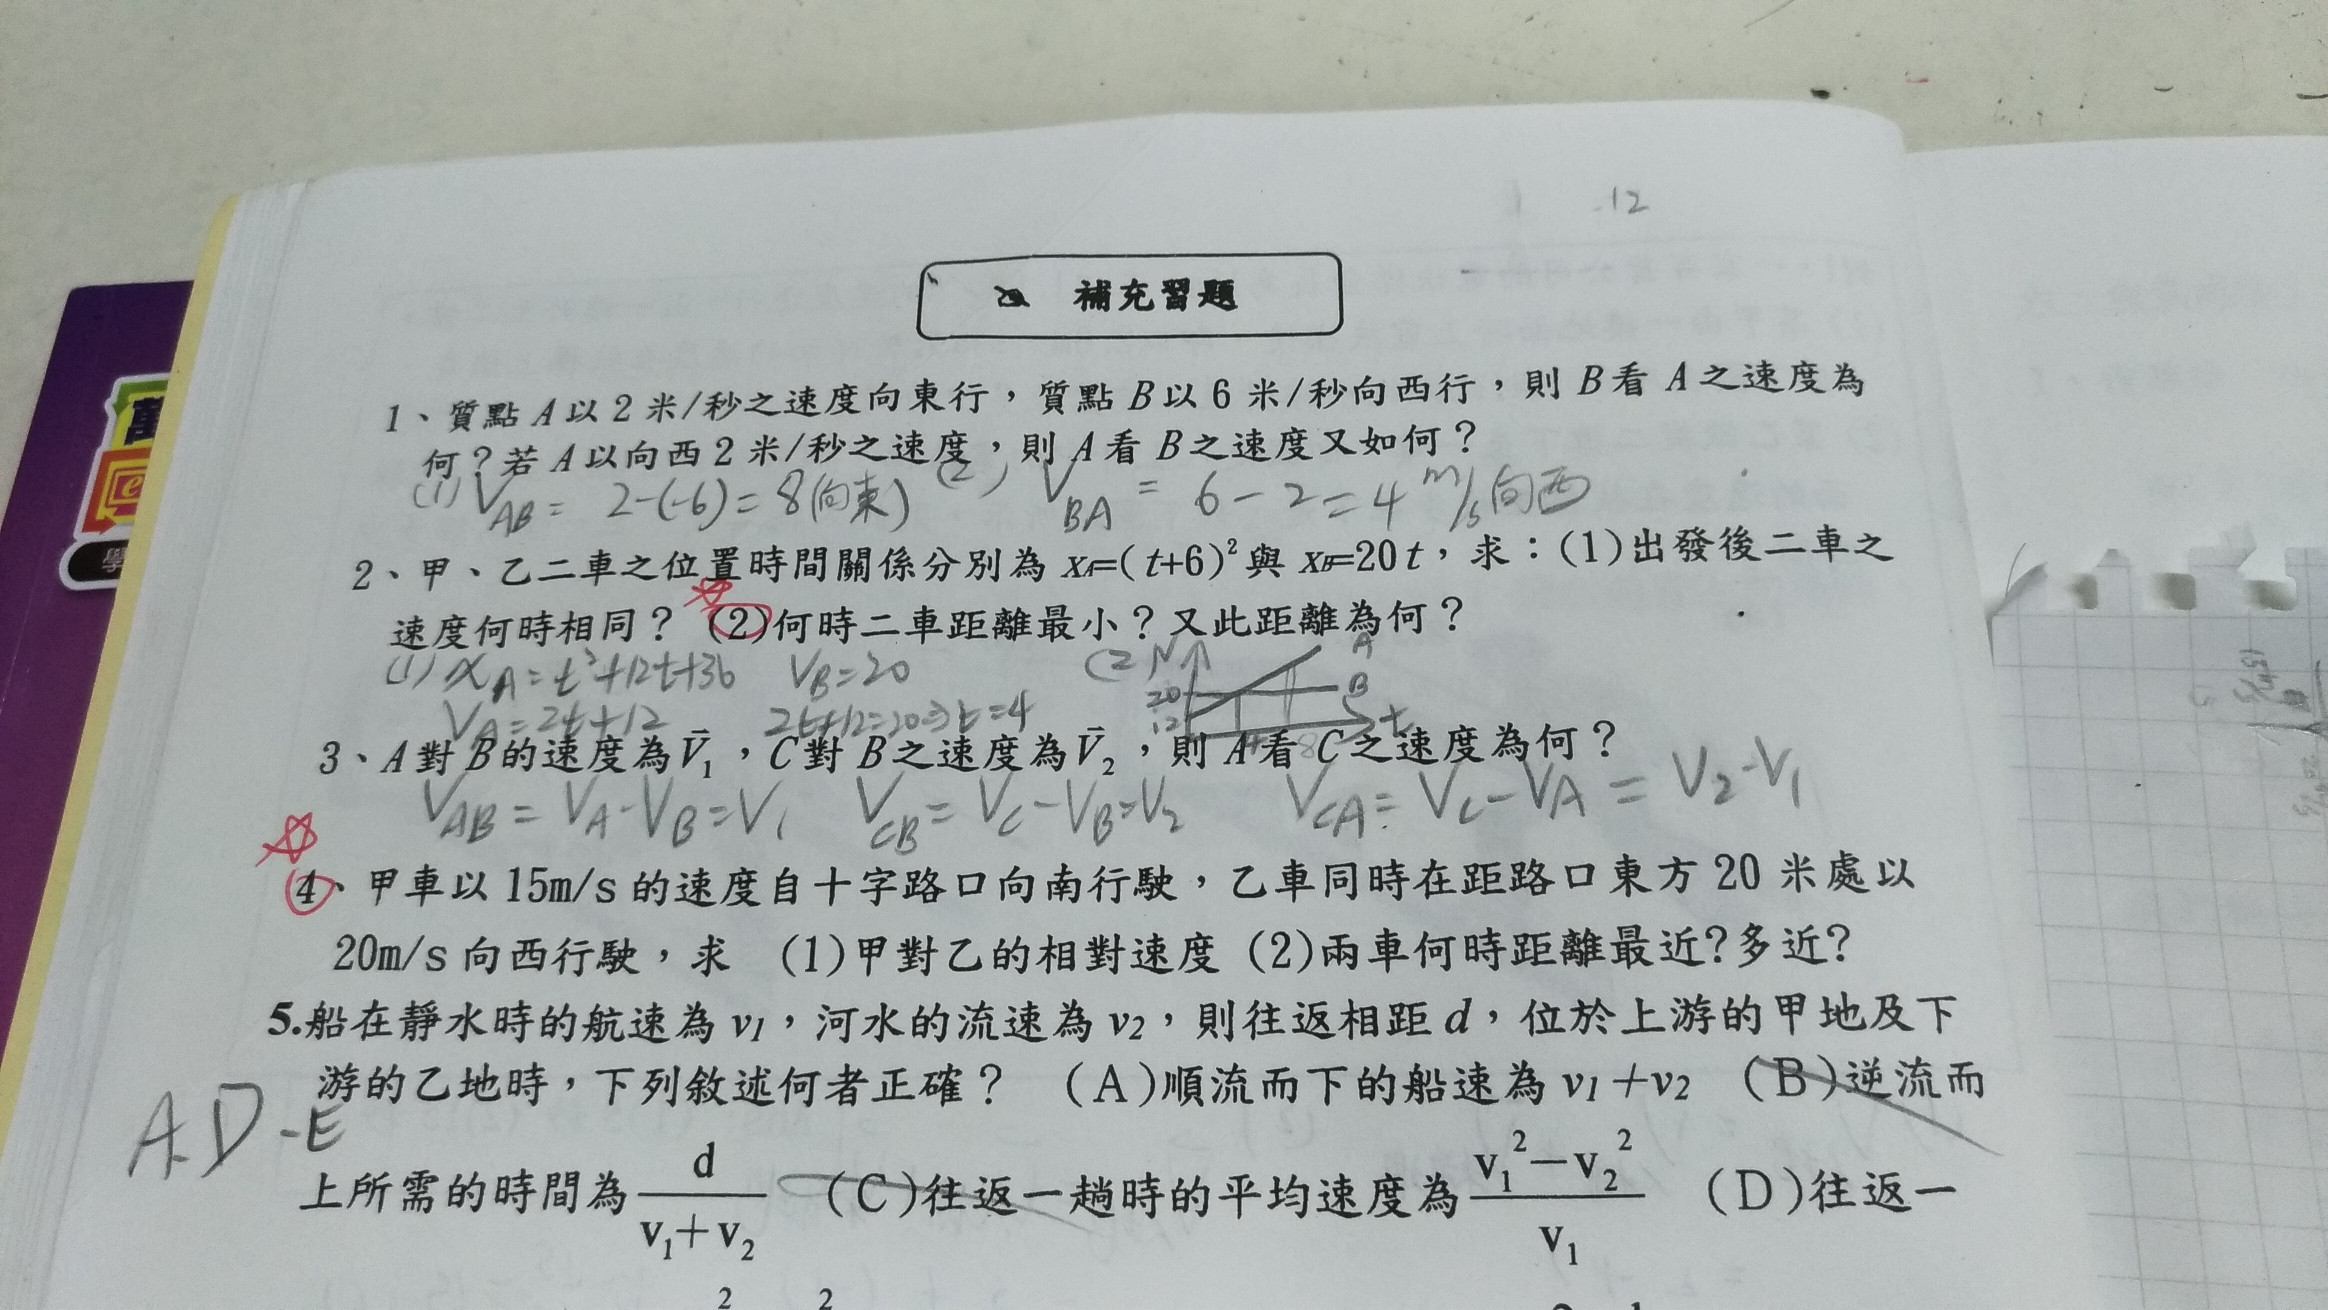 .12
補充習題
1、質點 A 以 2 米/秒之速度向東行，質點 B 以 6 米/秒向西行，則 B 看 A 之速度為
何？若 A 以向西 2 米/秒之速度，則 A 看 B 之速度又如何？
(1) V_AB = 2-(-6) = 8(向東) (2) V_BA = 6-2=4 m/s 向西
2、甲、乙二車之位置時間關係分別為 x_A=(t+6)²與 x_B=20t，求：(1)出發後二車之
速度何時相同？ (2)何時二車距離最小？又此距離為何？
(1) x_A = t²+12t+36 V_B=20 (2) A
V_A=2t+12 2t+12=20⇒t=4 20 B 12 t
3、A 對 B 的速度為 V⃗₁，C 對 B 之速度為 V⃗₂，則 A 看 C 之速度為何？
V_AB = V_A-V_B=V₁ V_CB = V_C-V_B=V₂ V_CA = V_C-V_A = V₂-V₁
4、甲車以 15m/s 的速度自十字路口向南行駛，乙車同時在距路口東方 20 米處以
20m/s 向西行駛，求 (1)甲對乙的相對速度 (2)兩車何時距離最近?多近?
5.船在靜水時的航速為 v₁，河水的流速為 v₂，則往返相距 d，位於上游的甲地及下
游的乙地時，下列敘述何者正確？ (A)順流而下的船速為 v₁+v₂ (B)逆流而
A.D-E
上所需的時間為 d/(v₁+v₂) (C)往返一趟時的平均速度為 (v₁²-v₂²)/v₁ (D)往返一